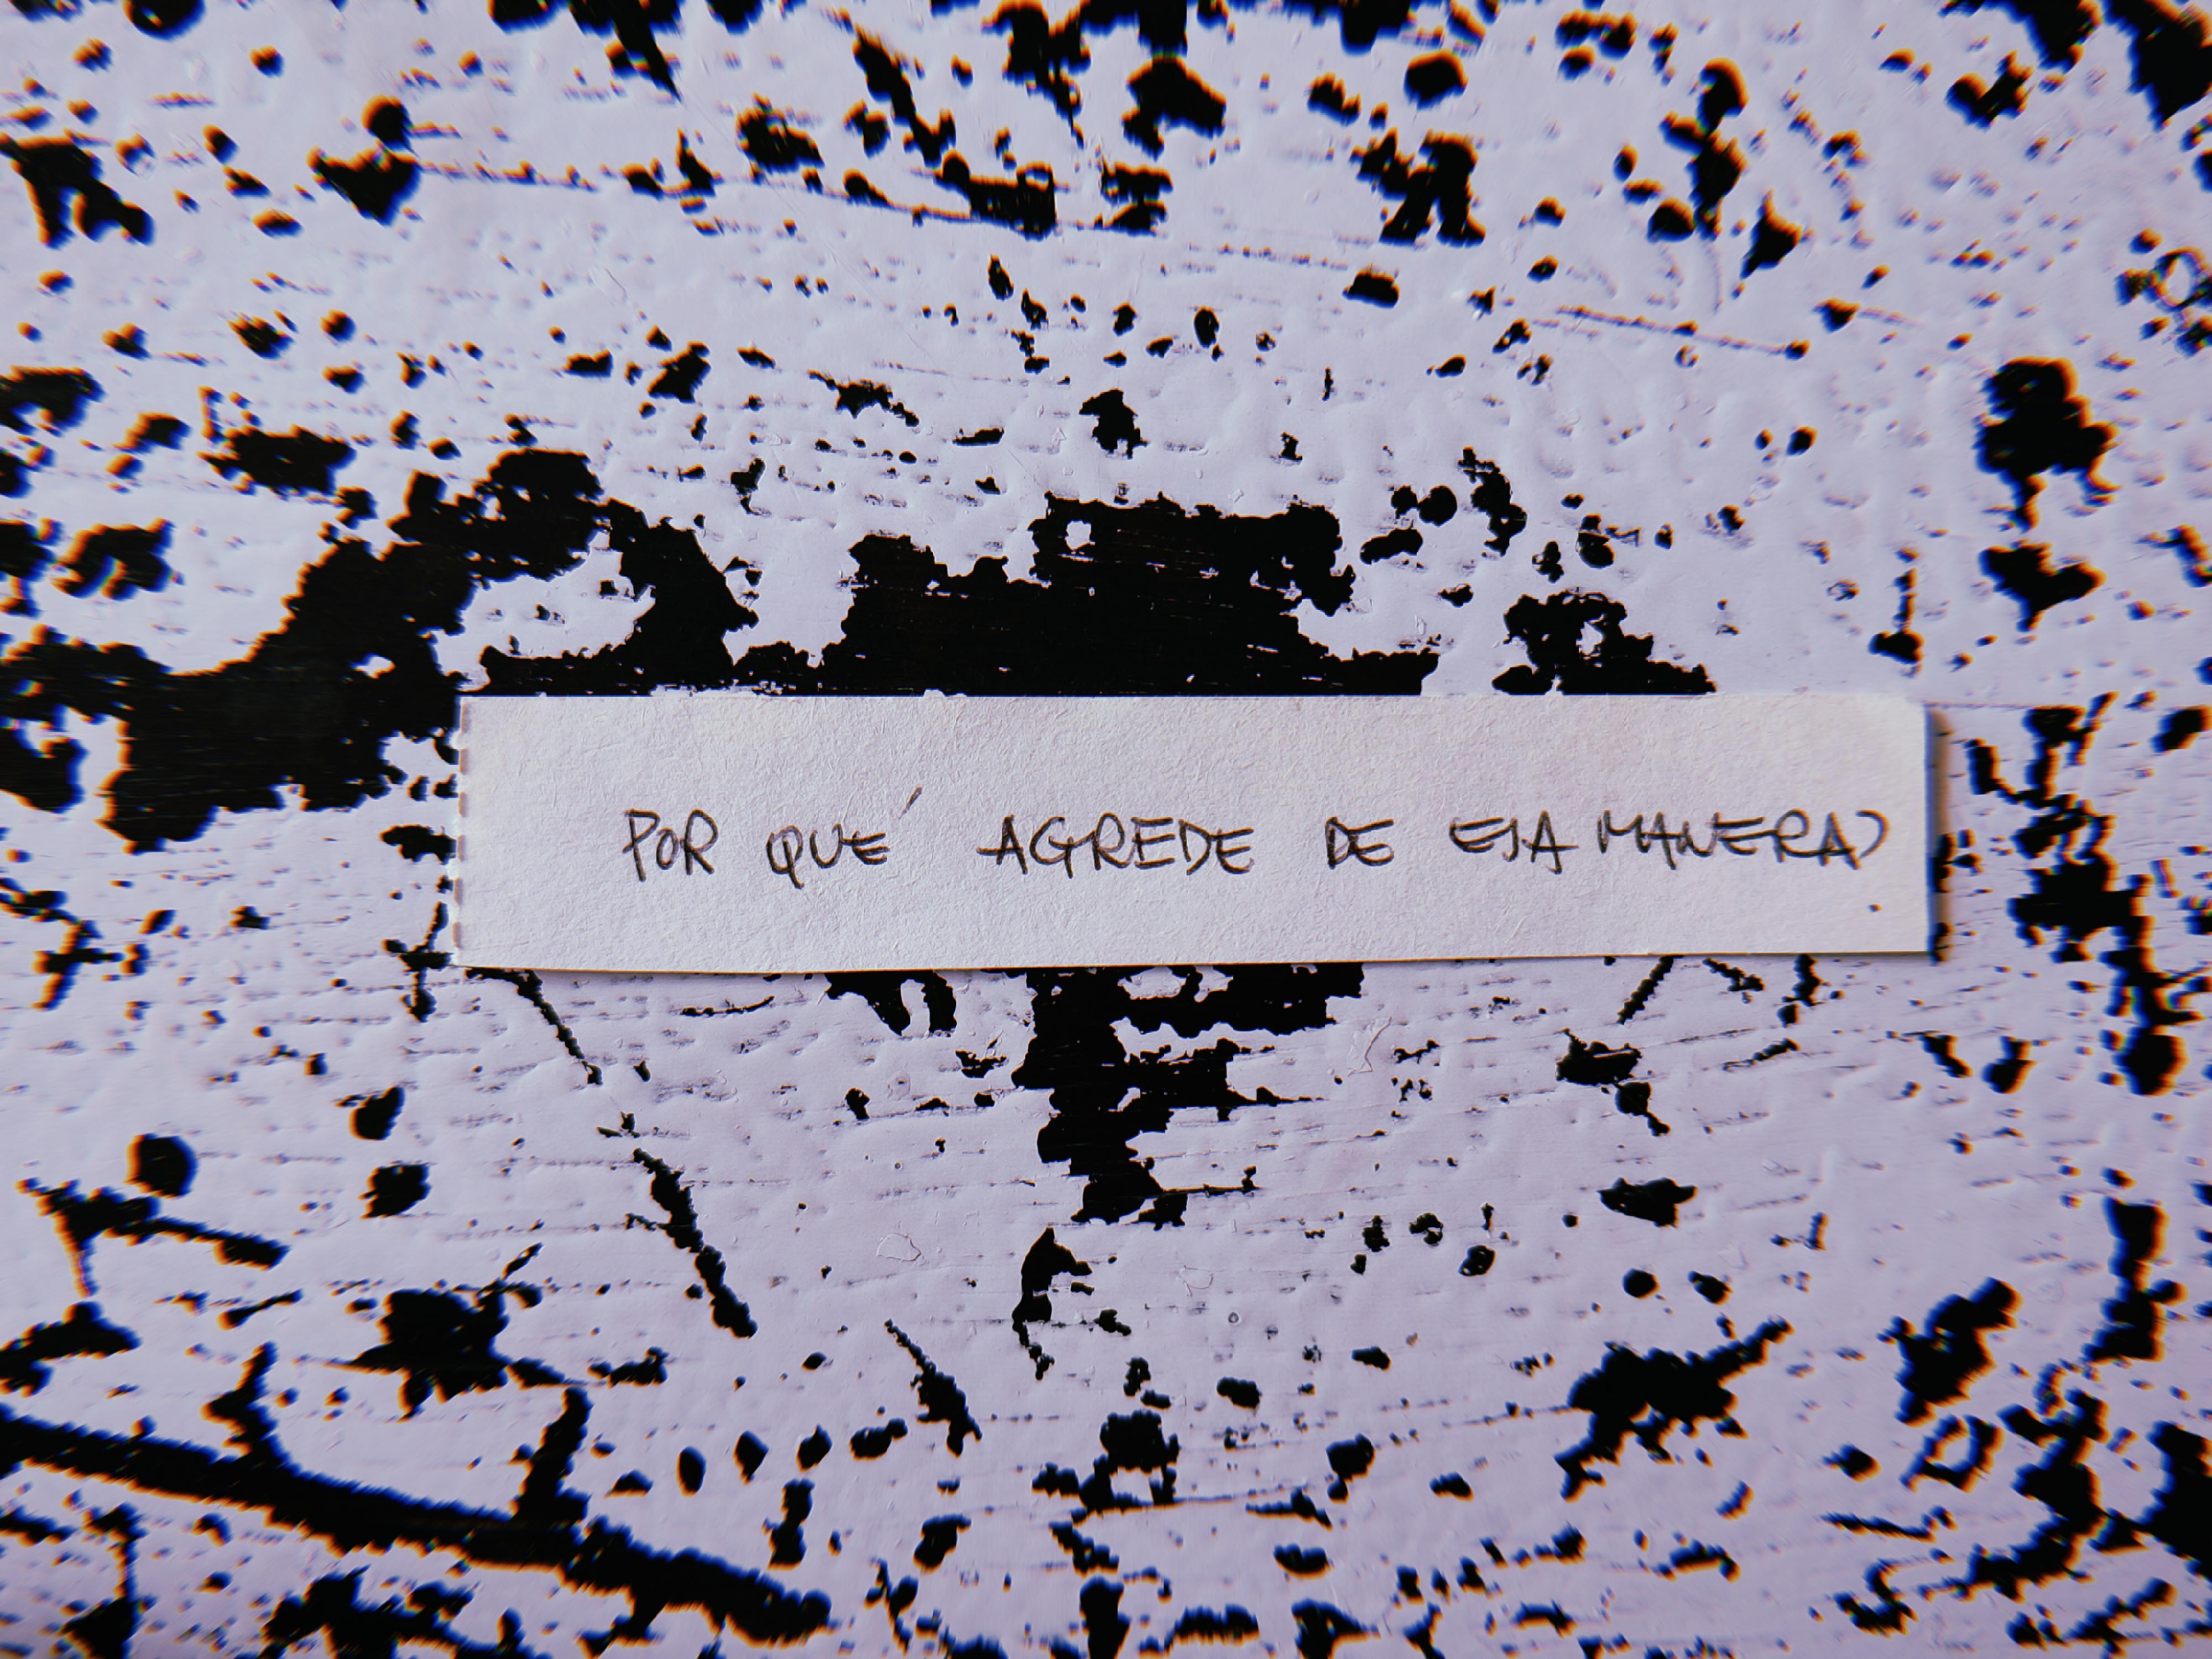 POR QUÉ AGREDE DE ESA MANERA?